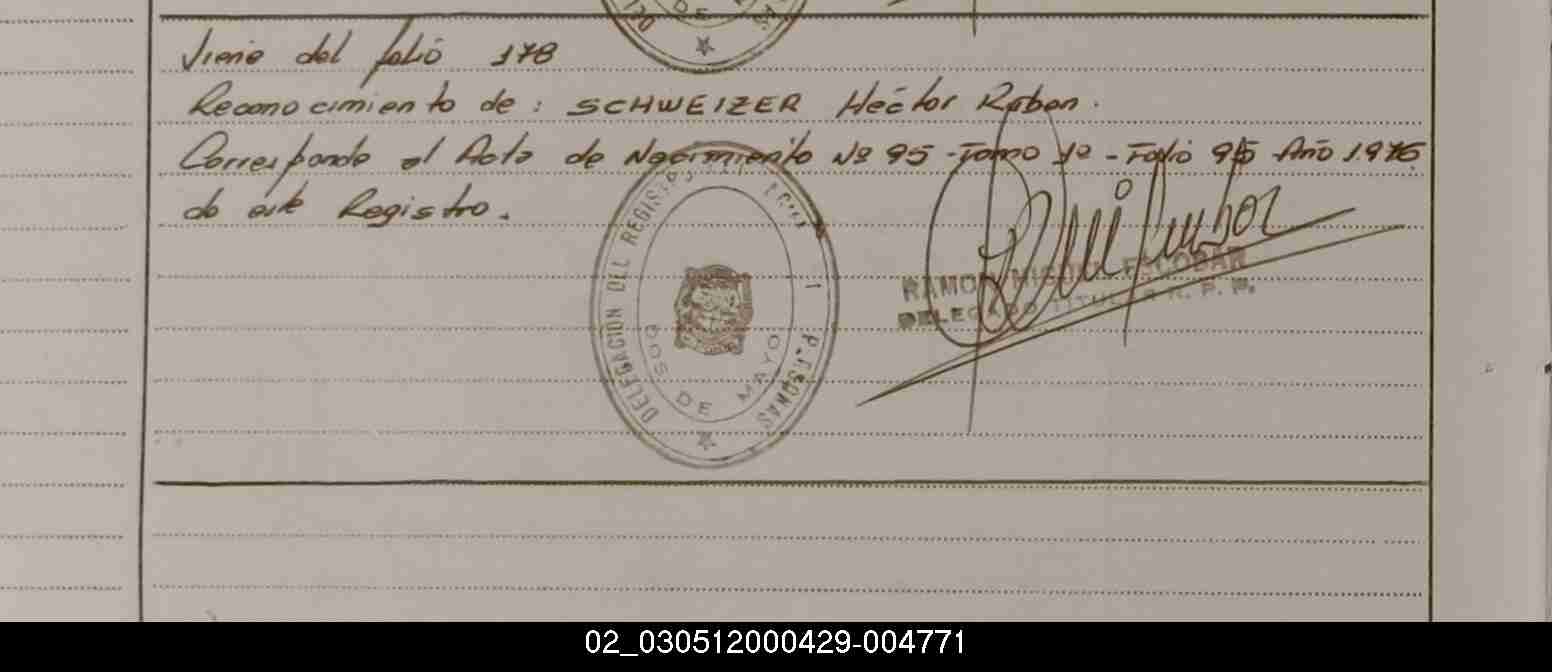 DE
Viene del folio 178
Reconocimiento de: SCHWEIZER Héctor Ruben.
Corresponde al Acta de Nacimiento Nº 95 - Tomo 1º - Folio 95 Año 1976
de este Registro.
DELEGACION DEL REGISTRO
PERSONAS
DOS DE MAYO
RAMON MIGUEL ESCOBAR
DELEGADO TITULAR R. P. P.
02_030512000429-004771